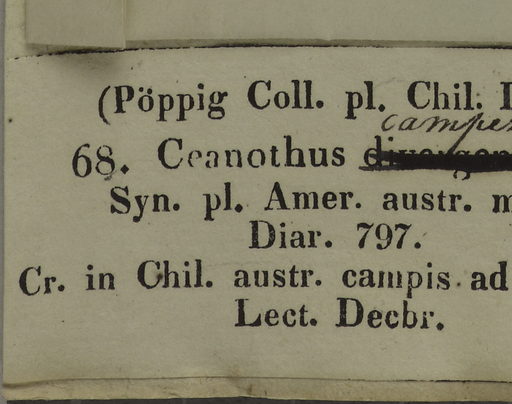 (Pöppig Coll. pl. Chil. I
campes
68. Ceanothus divergen
Syn. pl. Amer. austr. m
Diar. 797.
Cr. in Chil. austr. campis ad
Lect. Decbr.